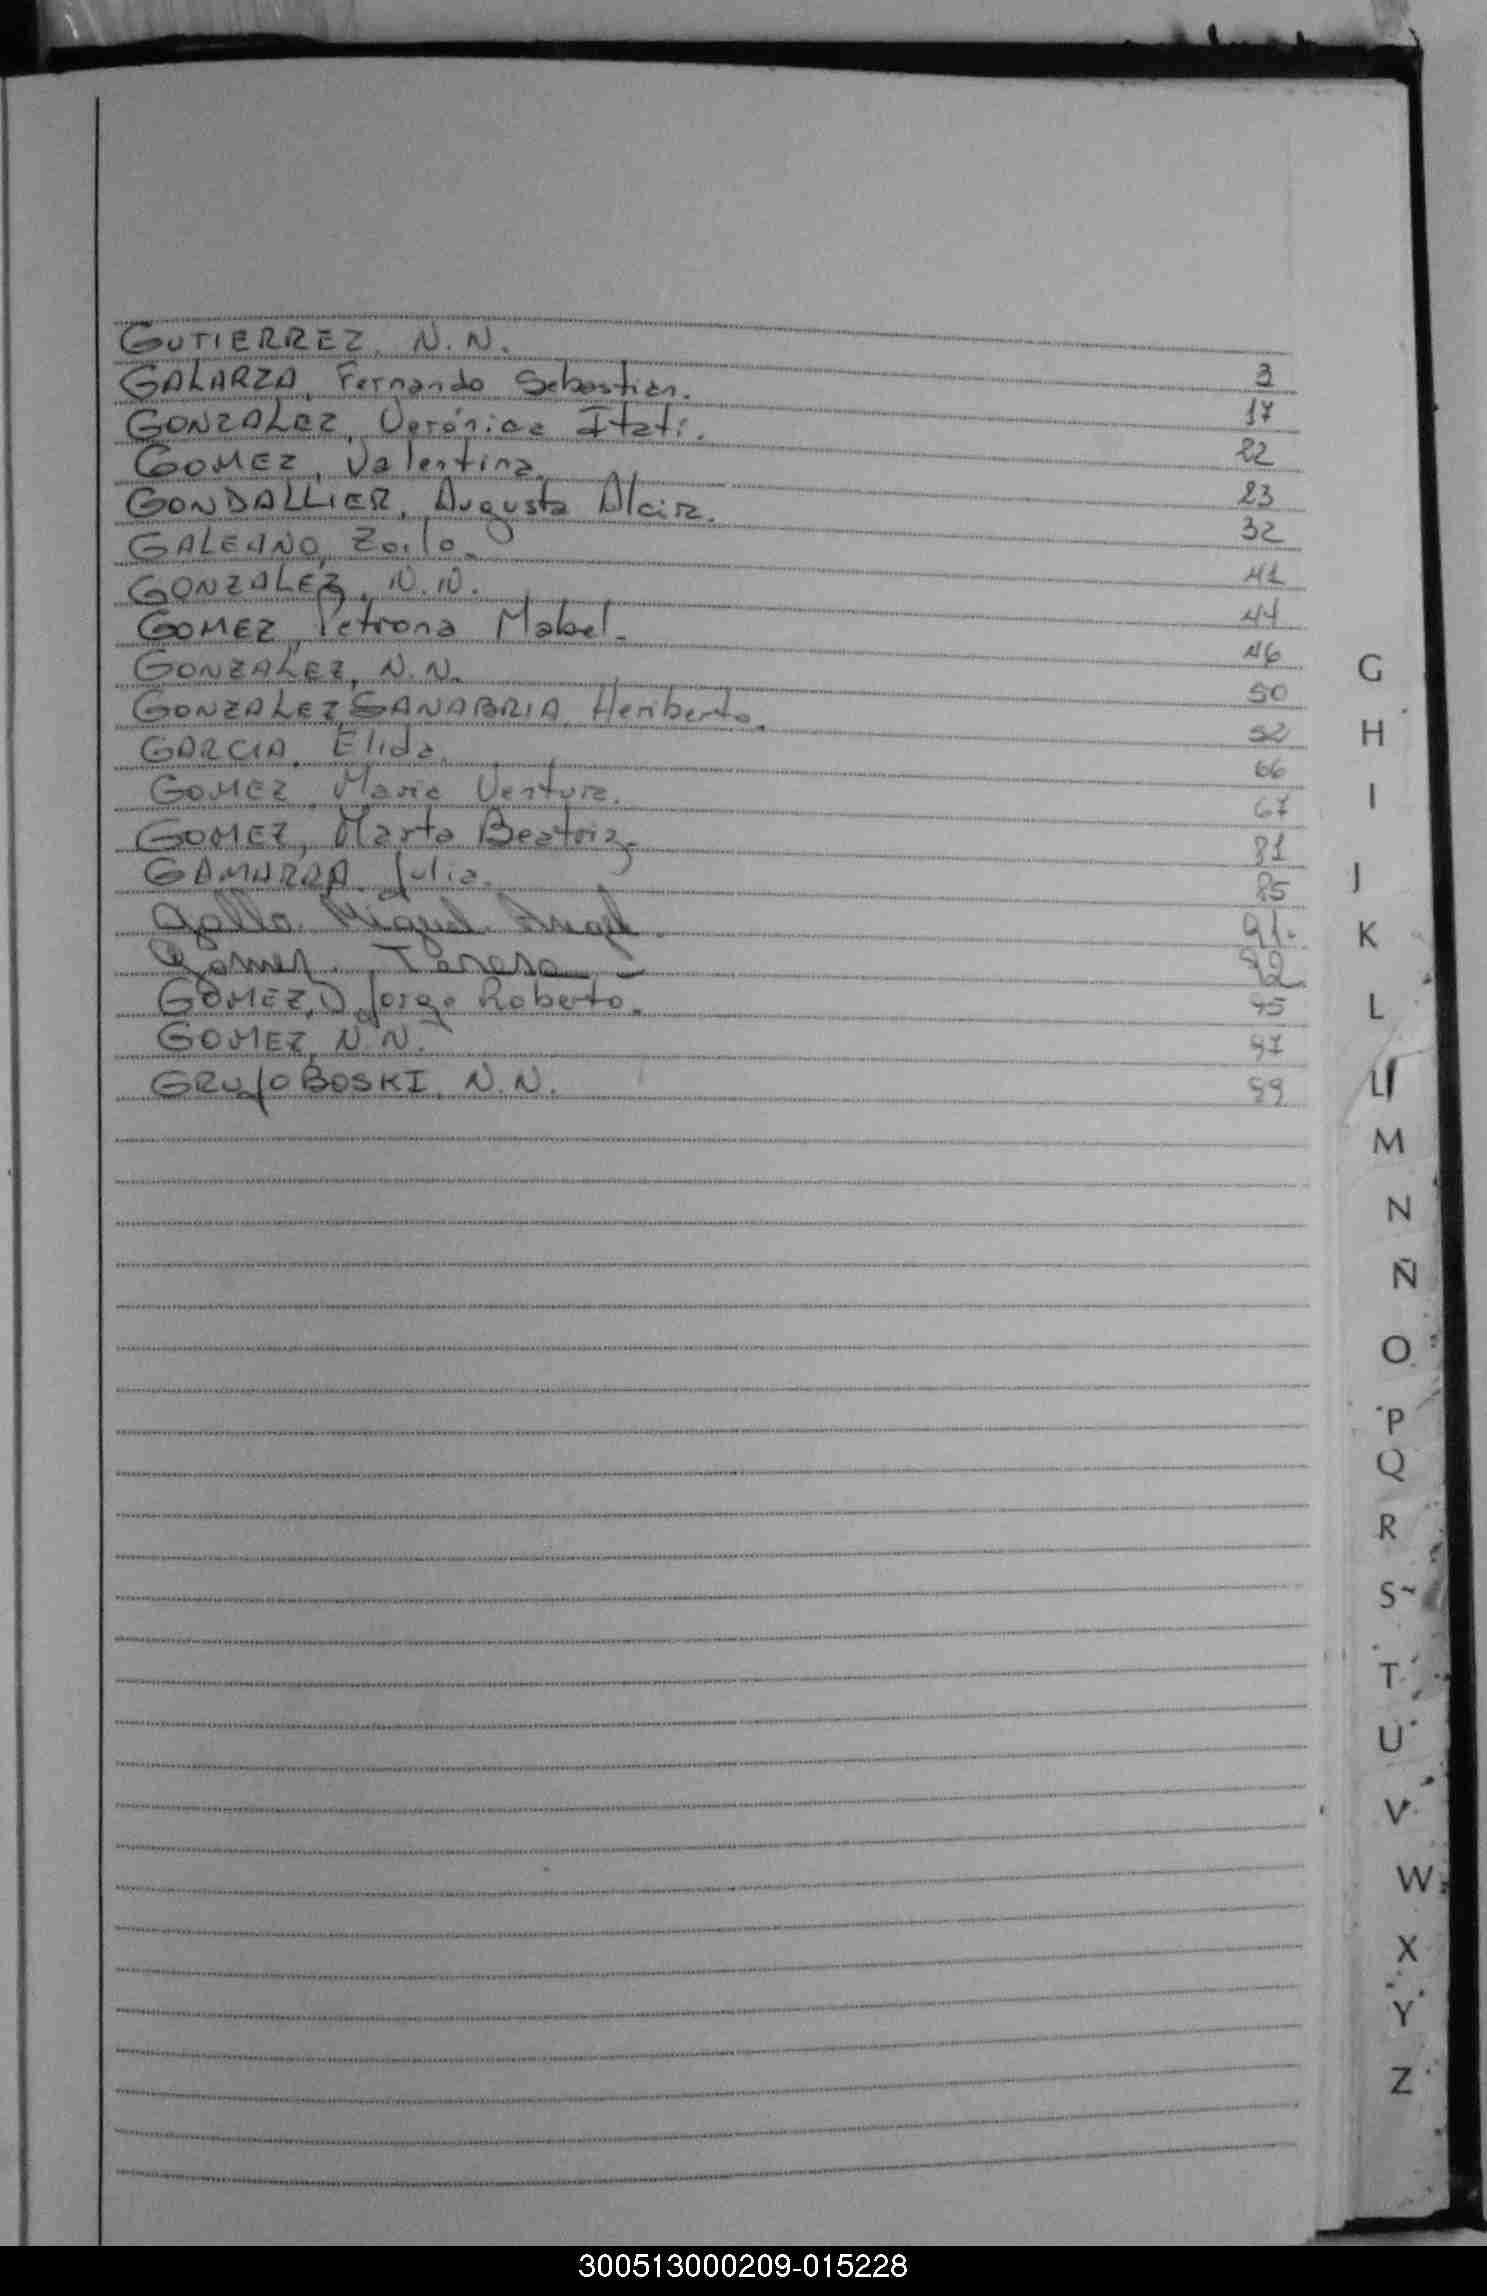 GUTIERREZ, N.N. 3
GALARZA, Fernando Sebastian. 17
GONZALEZ, Verónica Itatí. 22
GOMEZ, Valentina. 23
GONDALLIER, Augusta Alcira. 32
GALEANO, Zoilo. 41
GONZALEZ, N.N. 44
GOMEZ, Petrona Mabel. 46
GONZALEZ, N.N. 50
GONZALEZ SANABRIA, Heriberto. 52
GARCIA, Elida. 66
GOMEZ, Maria Ventura. 67
GOMEZ, Marta Beatriz. 81
GAMARRA, Julia. 85
Gallo. Miguel. Angel. 91.
Gomez. Teresa 92.
GOMEZ, Jorge Roberto. 95
GOMEZ, N.N. 97
N.N. 99
G
H
I
J
K
L
LL
M
N
Ñ
O
P
Q
R
S
T
U
V
W
X
Y
Z
300513000209-015228